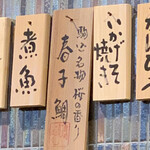 いかげそ
焼き
駒込名物 桜の香り
春子鯛
煮魚